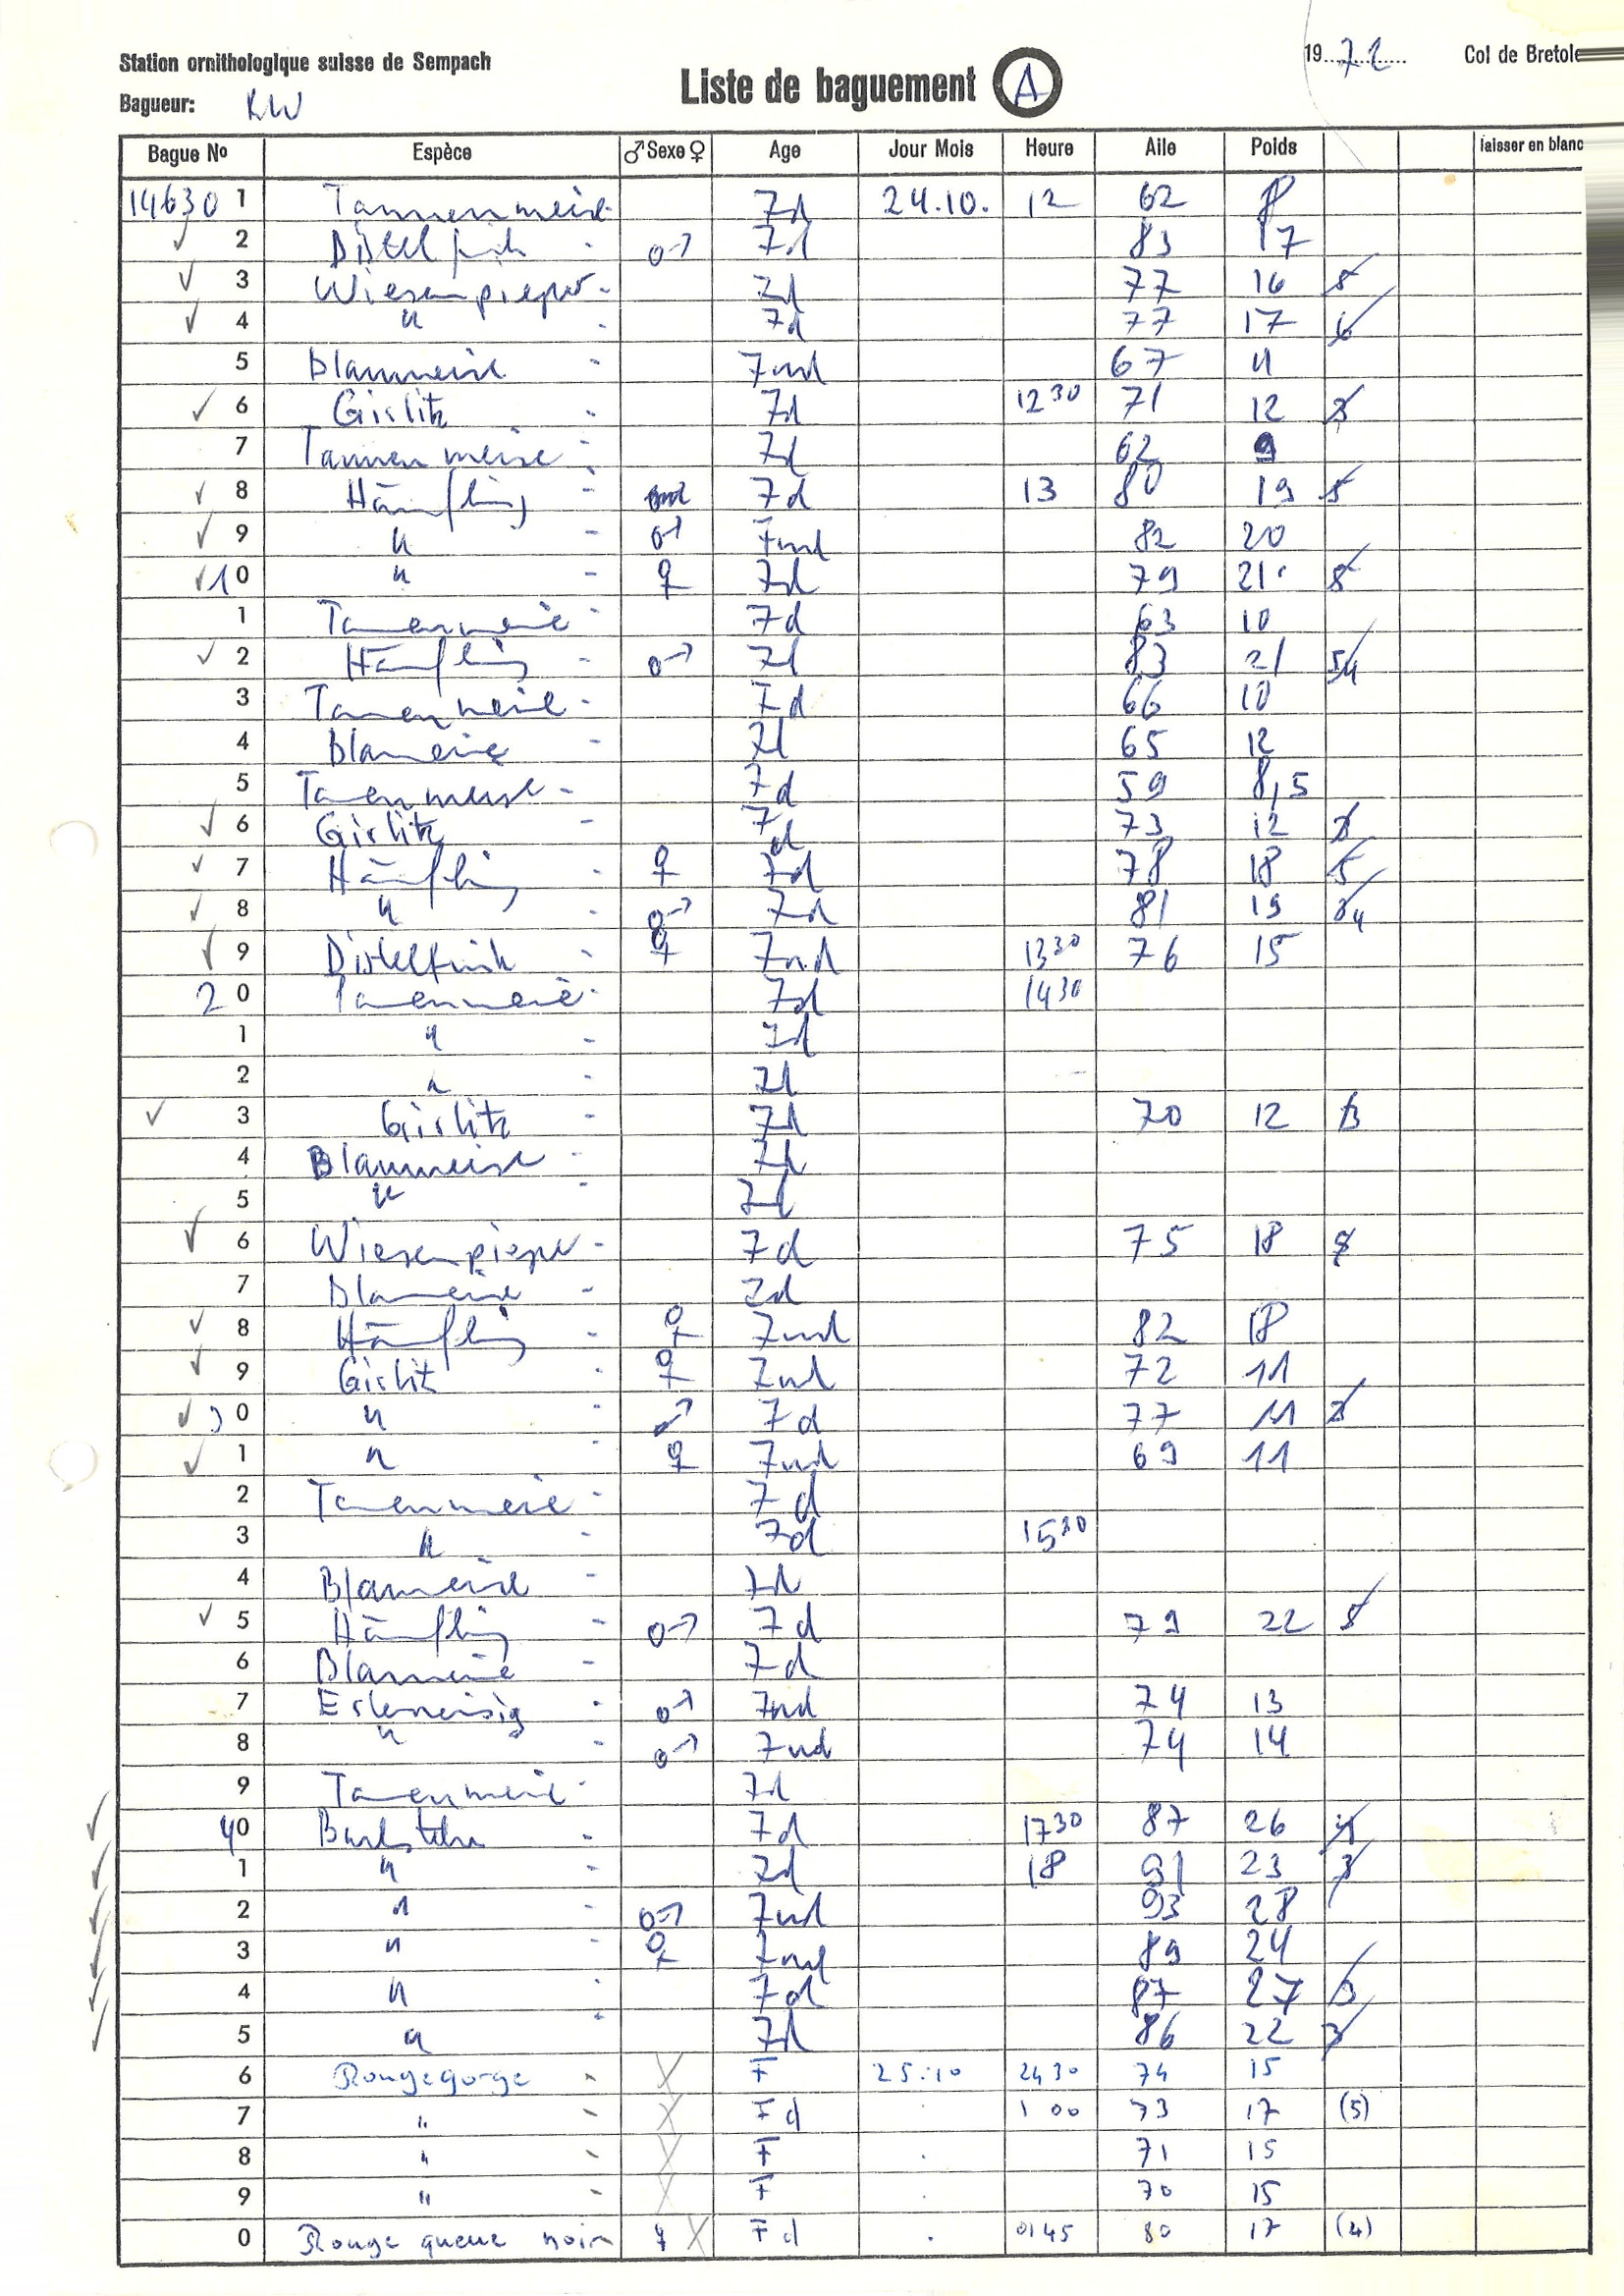 Station ornithologique suisse de Sempach
19 72 Col de Bretole
Liste de baguement A
Bagueur: RW
Bague No Espèce ♂ Sexe ♀ Age Jour Mois Heure Aile Poids laisser en blanc
14630 1 Tannenmeise 7d 24.10. 12 62 8
✓ 2 Distelfink - ♂ 7d 83 17
✓ 3 Wiesenpieper - 7d 77 16 5
✓ 4 " - 7d 77 17 6
5 Blaumeise - 7nd 67 11
✓ 6 Girlitz - 7d 12 30 71 12 3
7 Tannenmeise - 7d 62 9
✓ 8 Hänfling - 7d 13 80 19 5
✓ 9 " - ♂ 7nd 82 20
✓ 10 " - ♀ 7d 79 21 5
1 Tannenmeise - 7d 63 10
✓ 2 Hänfling - ♂ 7d 83 21 54
3 Tannenmeise - 7d 66 10
4 Blaumeise - 7d 65 12
5 Tannenmeise - 7d 59 8,5
✓ 6 Girlitz - 7d 73 12 3
✓ 7 Hänfling - ♀ 7d 78 18 5
✓ 8 " - ♂ 7d 81 19 4
✓ 9 Distelfink - ♀ 7nd 13 30 76 15
20 Tannenmeise - 7d 14 30
1 " - 7d
2 " - 7d
✓ 3 Girlitz - 7d 70 12 3
4 Blaumeise - 7d
5 " - 7d
✓ 6 Wiesenpieper - 7d 75 18 8
7 Blaumeise - 7d
✓ 8 Hänfling - ♀ 7nd 82 18
✓ 9 Girlitz - ♀ 7nd 72 11
✓ 30 " - ♂ 7d 77 11 3
✓ 1 " - ♀ 7nd 69 11
2 Tannenmeise - 7d
3 " - 7d 15 30
4 Blaumeise - 7d
✓ 5 Hänfling - ♂ 7d 79 22 5
6 Blaumeise - 7d
7 Erlenzeisig - ♂ 7nd 74 13
8 " - ♂ 7nd 74 14
9 Tannenmeise - 7d
✓ 40 - 7d 17 30 87 26 4
✓ 1 " - 7d 18 91 23 3
✓ 2 " - ♂ 7nd 93 28
✓ 3 " - ♀ 7nd 89 24
✓ 4 " - 7d 87 27 3
✓ 5 " - 7d 86 22 3
6 Rougegorge - X F 25.10 24 30 74 15
7 " - X F d 1 00 73 17 (5)
8 " - X F . 71 15
9 " - X F . 70 15
0 Rouge queue noir ♀ X F d . 01 45 80 17 (4)